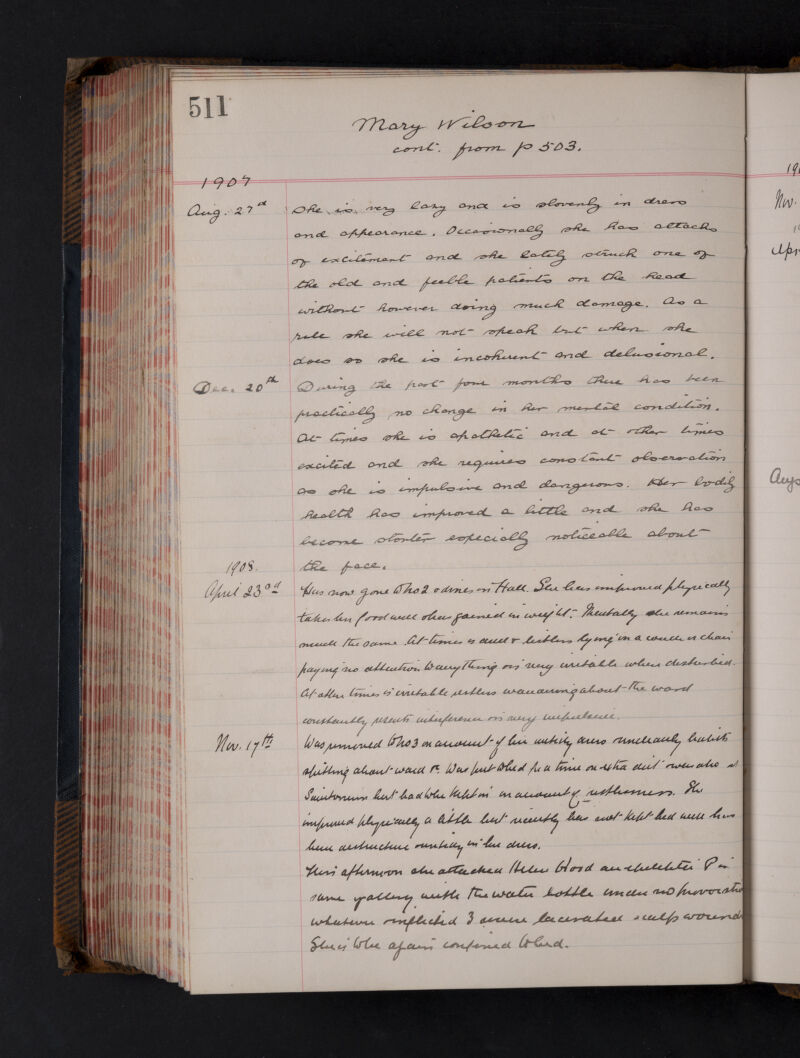 511
Mary Wilson
cont. from p 503.
1907
Aug. 27th She is very lazy and is slovenly in dress
and appearance. Occasionally she has attacks
of excitement and she lately struck one of
the old and feeble patients on the head
without however doing much damage. As a
rule she will not speak but when she
does so she is incoherent and delusional.
Dec. 20th During the past four months there has been
practically no change in her mental condition.
At times she is apathetic and at other times
excited and she requires constant observation
as she is impulsive and dangerous. Her bodily
health has improved a little and she has
become stouter especially noticeable about
1908. the face.
April 23rd Has now gone to No 2 & dines in Hall. She has improved physically
takes her food well & has gained in weight. Mentally she remains
much the same. At times is dull & listless lying on a couch or chair
paying no attention to anything & is very irritable when disturbed.
At other times is irritable restless wandering about the ward
constantly resents interference & is very impulsive.
Nov. 17th Was removed to No 3 on account of her untidy & uncleanly habits
spitting about ward &c. Was put to bed for a time on extra diet & was also at
Sanitorium but had to be kept in on account of restlessness. She
improved physically a little but recently has not kept bed well & has
been destructive & untidy in her dress.
This afternoon she attacked Helen Wood an epileptic P in
same gallery with the water bottle under no provocation
whatever & inflicted 3 severe lacerated scalp wounds
She is to be again confined to bed.
190
Nov.
Apr
Aug